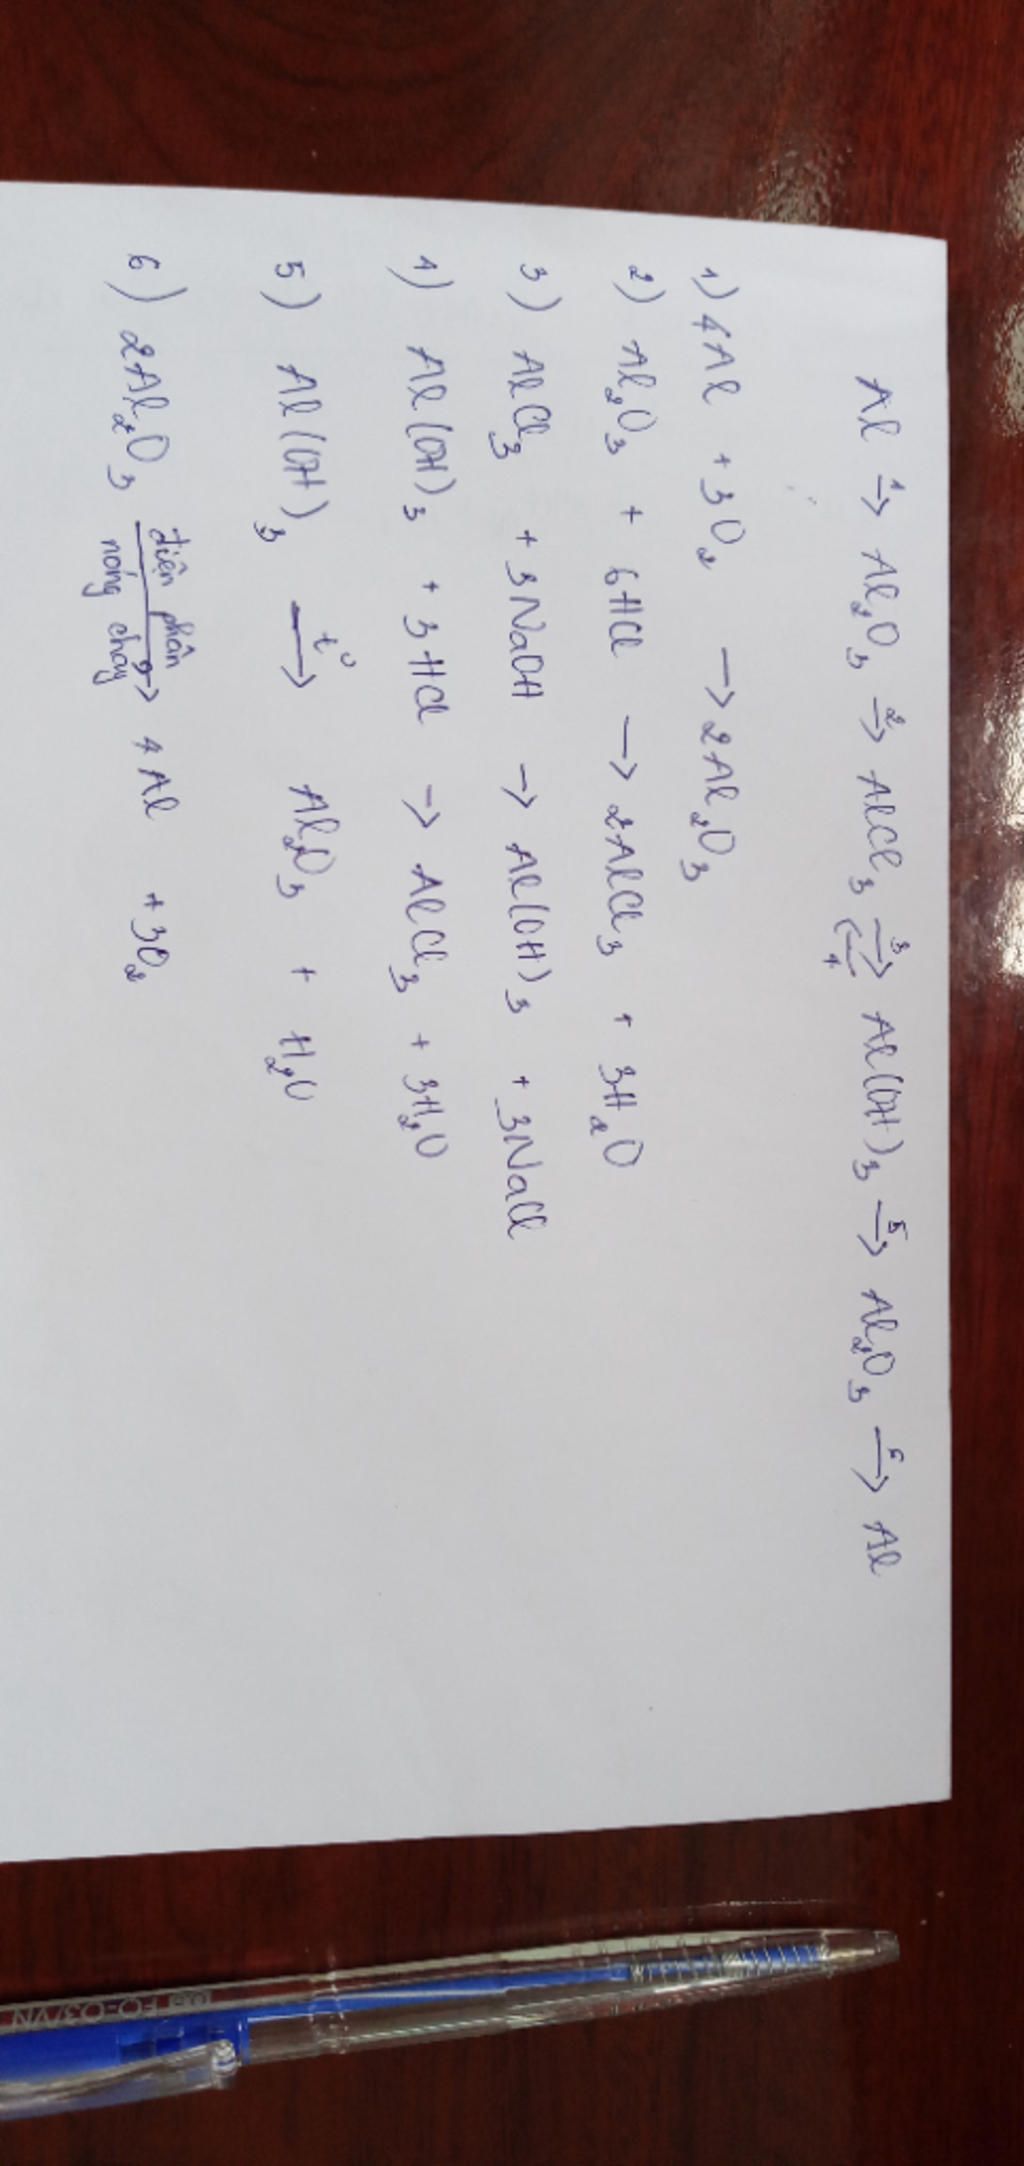 Al →1 Al₂O₃ →2 AlCl₃ ⇄3 4 Al(OH)₃ →5 Al₂O₃ →6 Al
1) 4Al + 3O₂ → 2Al₂O₃
2) Al₂O₃ + 6HCl → 2AlCl₃ + 3H₂O
3) AlCl₃ + 3NaOH → Al(OH)₃ + 3NaCl
4) Al(OH)₃ + 3HCl → AlCl₃ + 3H₂O
5) Al(OH)₃ →t° Al₂O₃ + H₂O
6) 2Al₂O₃ điện phân nóng chảy → 4Al + 3O₂
FO-03/VN